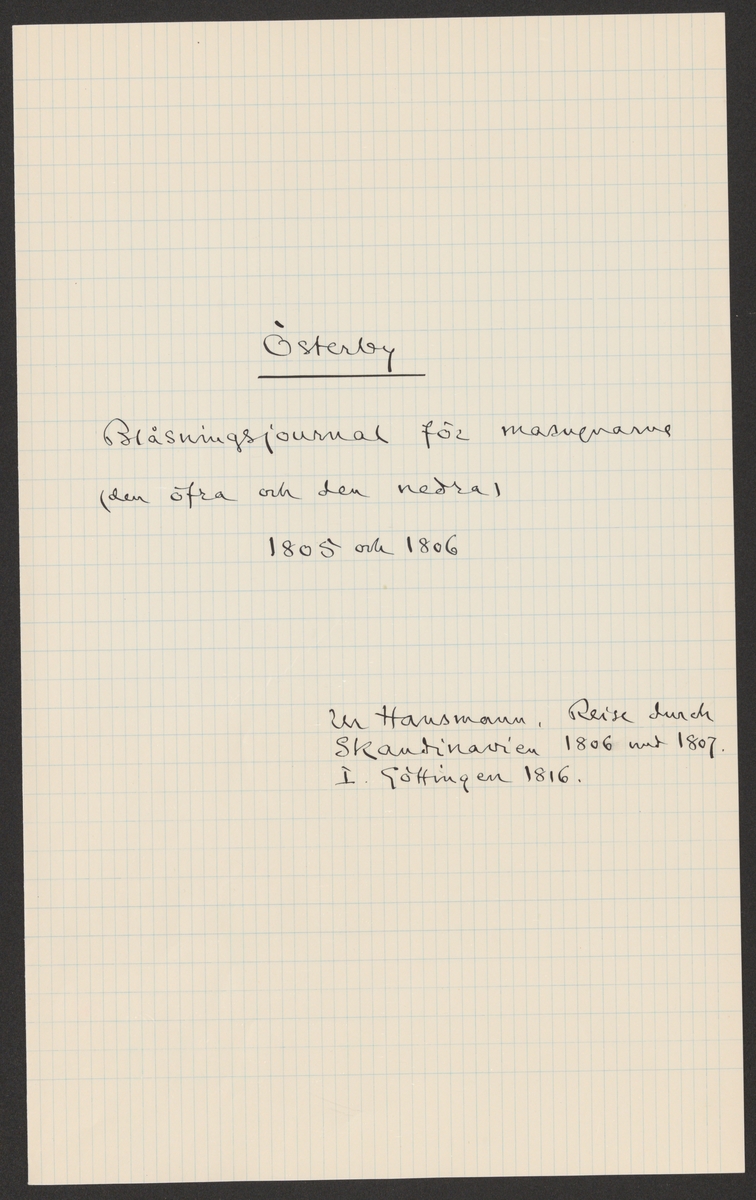 Österby
Blåsningsjournal för masugnarne
(den öfra och den nedra)
1805 och 1806
Ur Hausmann, Reise durch
Skandinavien 1806 und 1807.
I. Göttingen 1816.